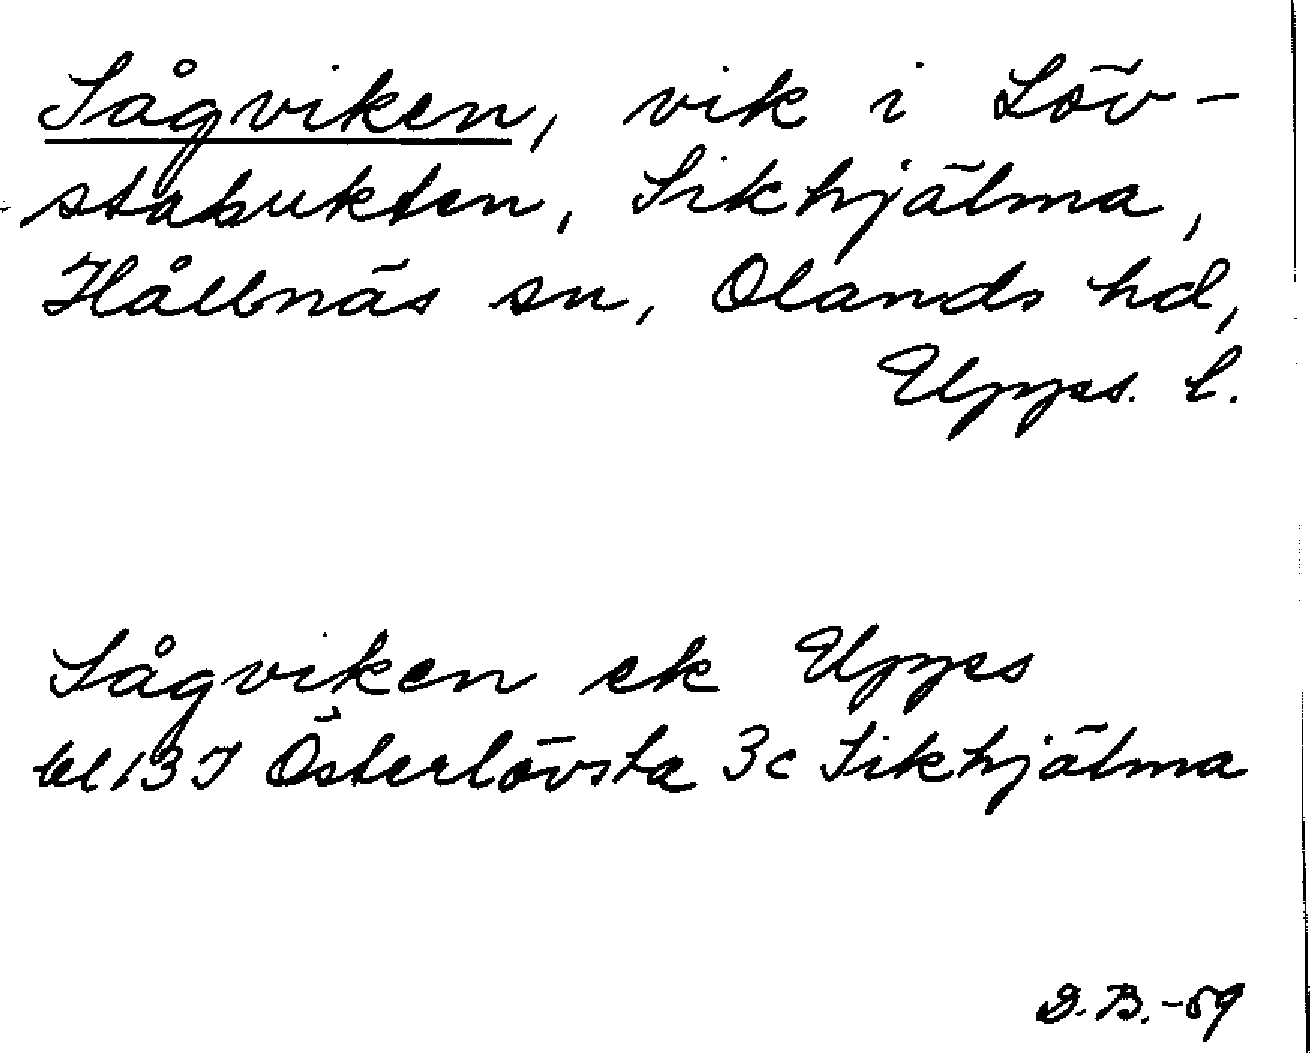 Sågviken, vik i Löv-
stabukten, Sikhjälma,
Hållnäs sn, Olands hd,
Upps. l.
Sågviken ek Upps
bl 13I Österlövsta 3c Sikhjälma
D.B.-59